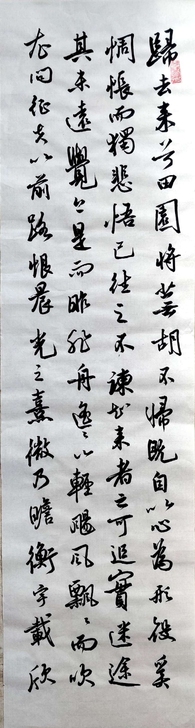 歸去来兮田園將蕪胡不帰既自以心為形役奚
惆悵而獨悲悟已往之不諫知来者之可追實迷途
其未遠覺今是而昨非舟遥々以輕颺風飄々而吹
衣問征夫以前路恨晨光之熹微乃瞻衡宇載欣